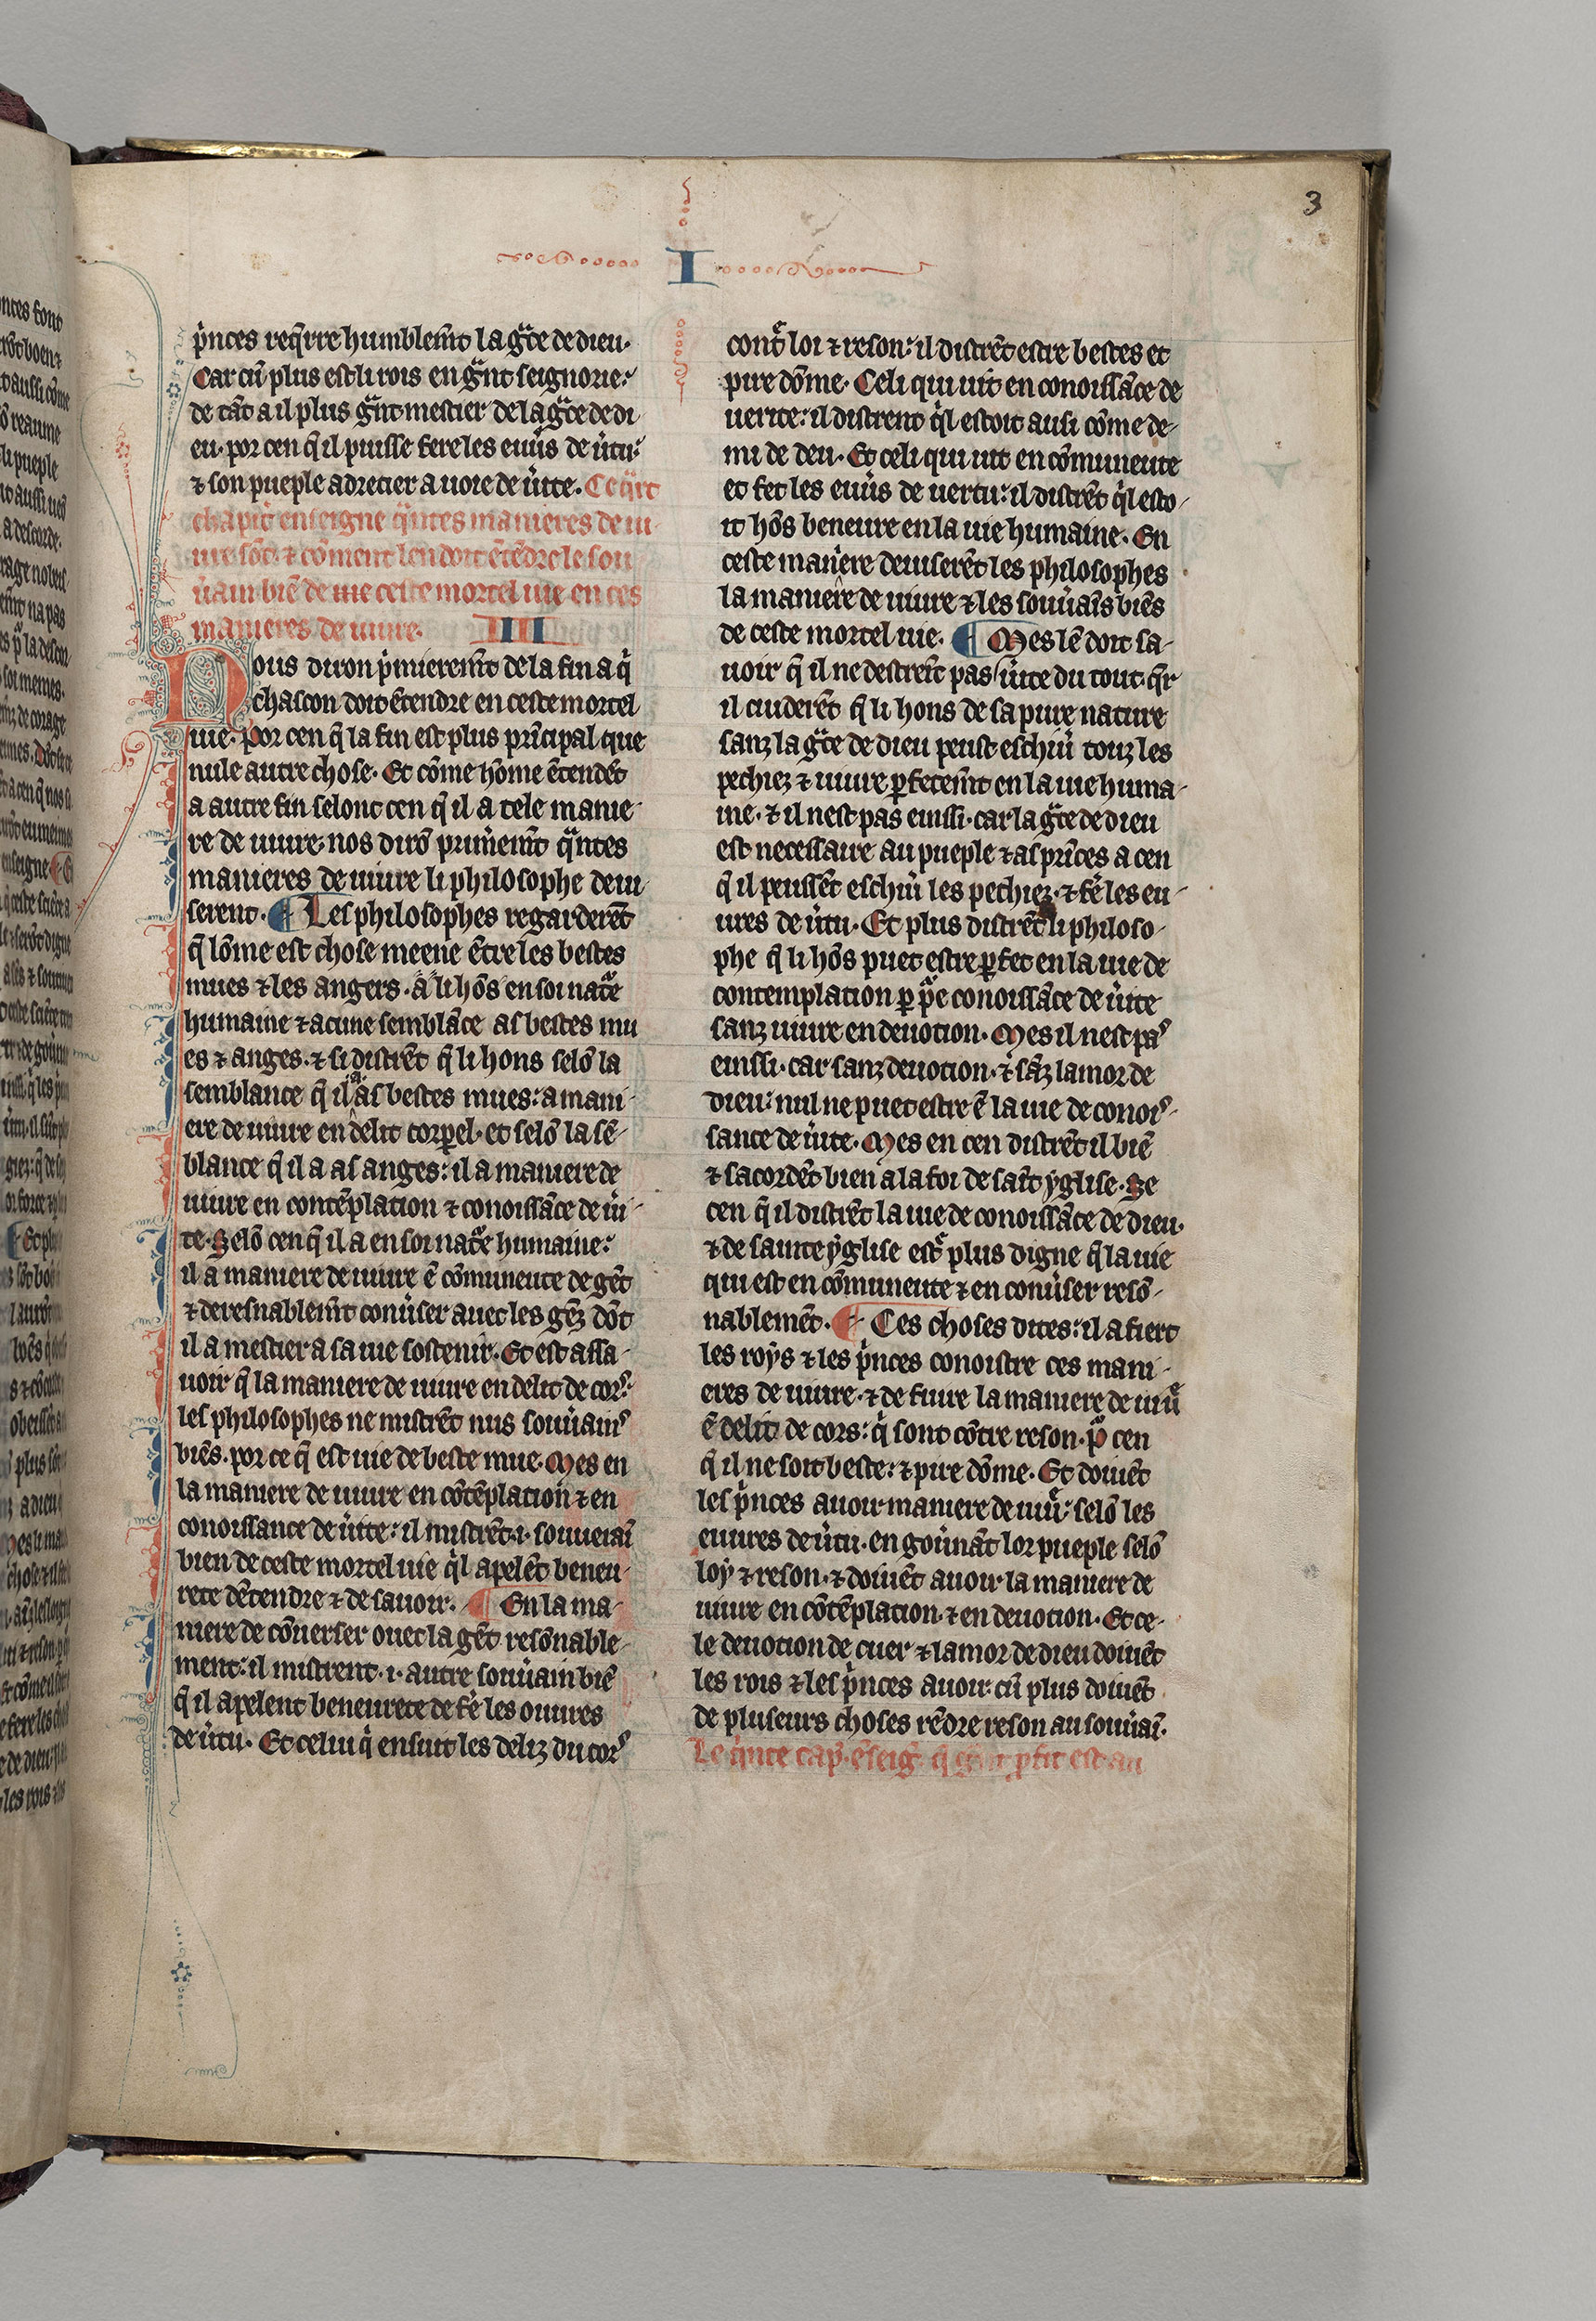 3
I
p̓nces req̄rre humblem̄t la gᵃce de dieu·
Car cū plus est li rois en gᵃnt seignorie:
de tāt a il plus gᵃnt mestier de la gᵃce de di
eu· por cen q̄ il puisse fere les euu̓s de u̓tu:
⁊ son pueple adrecier a uoie de u̓ite. Ce qᵃrt
chapit̓ enseigne qᵃntes manieres de ui
ure sōt· ⁊ cōment len doit ētēdre le sou
u̓ain biē de ceste mortel uie en ces
manieres de uiure. IIII
Nous diron p̓mierem̄t de la fin a q̓
chascon doit ētendre en ceste mortel
uie· por cen q̄ la fin est plus prīcipal que
nule autre chose· Et cōme hōme ētendēt
a autre fin selonc cen q̄ il a tele manie
re de uiure· nos dirō prim̓em̄t qᵃntes
manieres de uiure li philosophe deui
serent· ¶ Les philosophes regarderēt
q̄ lōme est chose meene ētre les bestes
mues ⁊ les angers· a li hōs en soi natᵉ
humaine ⁊ acune semblāce as bestes mu
es ⁊ anges· ⁊ si distrēt q̄ li hons selō la
semblance q̄ il a as bestes mues: a mani
ere de uiure en delit corꝑel· et selō la sē
blance q̄ il a as anges: il a maniere de
uiure en contēplation ⁊ conoissāce de u̓i
te· Selō cen q̄ il a en soi natᵉ humaine:
il a maniere de uiure ē cōmuneute de gēt
⁊ de resnablem̄t conu̓ser auec les gēz dōt
il a mestier a sa uie sostenir· Et est assa
uoir q̄ la maniere de uiure en delit de cors:
les philosophes ne mistrēt nus souu̓ains
biēs· por ce q̄ est uie de beste mue· Mes en
la maniere de uiure en cōtēplation ⁊ en
conoissance de u̓ite: il mistrēt ·i· souueraī
bien de ceste mortel uie q̓l apelēt beneu
rete dētendre ⁊ de sauoir. ¶ En la ma
niere de cōuerser ouec la gēt resōnable
ment: il mistrent ·i· autre souu̓ain biē
q̄ il apelent beneurete de fe̓ les ouures
de u̓tu· Et celui q̓ ensuit les deliz du cors
contᵉ loi ⁊ reson: il distrēt estre bestes et
pire dōme· Celi qui uit en conoissāce de
uerite: il distrent q̓l estoit ausi cōme de
mi de deu· Et celi qui uit en cōmuneute
et fet les euu̓s de uertu: il distrēt q̓l esto
it hōs beneure en la uie humaine· En
ceste mani̓ere deuiserēt les philosophes
la maniere de uiure ⁊ les souu̓aīs biēs
de ceste mortel uie. ¶ Mes lē doit sa
uoir q̄ il ne destrēt pas u̓ite du tout· q̄r
il cuiderēt q̄ li hons de sa pure nature
sanz la gᵃce de dieu peust eschiu̓ touz les
pechiez ⁊ uiure ꝑfetem̄t en la uie huma
ine· ⁊ il nest pas einssi· car la gᵃce de dieu
est necessaire au pueple ⁊ as prīces a cen
q̄ il peussēt eschiu̓ les pechiez· ⁊ fe̓ les eu
ures de u̓tu· Et plus distrēt li philoso
phe q̄ li hōs puet estre ꝑfet en la uie de
contemplation ꝑ pᵉe conoissāce de u̓ite
sanz uiure en deuotion· Mes il nest pas
einssi· car sanz deuotion· ⁊ sāz lamor de
dieu: nul ne puet estre ē la uie de conois
sance de u̓ite· Mes en cen distrēt il biē
⁊ sacordēt bien a la foi de saīt yglise· Se
cen q̄ il distrēt la uie de conoissāce de dieu·
⁊ de sainte yglise estᵉ plus digne q̄ la uie
qui est en cōmuneute ⁊ en conu̓ser resō
nablemēt. ¶ Ces choses dites: il afiert
les roys ⁊ les p̓nces conoistre ces mani
eres de uiure· ⁊ de fuire la maniere de uiuᵉ
ē delit de cors: q̓ sont cōtre reson· pᵒ cen
q̄ il ne soit beste: ⁊ pire dōme· Et doiuēt
les p̓nces auoir maniere de uiuᵉ: selō les
euures de u̓tu· en gou̓nāt lor pueple selō
loy ⁊ reson· ⁊ doiuēt auoir la maniere de
uiure en cōtēplation· ⁊ en deuotion· Et ce
le deuotion de cuer ⁊ lamor de dieu doiuēt
les rois ⁊ les p̓nces auoir: cū plus doiuēt
de pluseurs choses rēdre reson au souu̓aī·
Le q̓nte cap̓· ēseig̓ q̄ gᵃnt ꝓfit est au